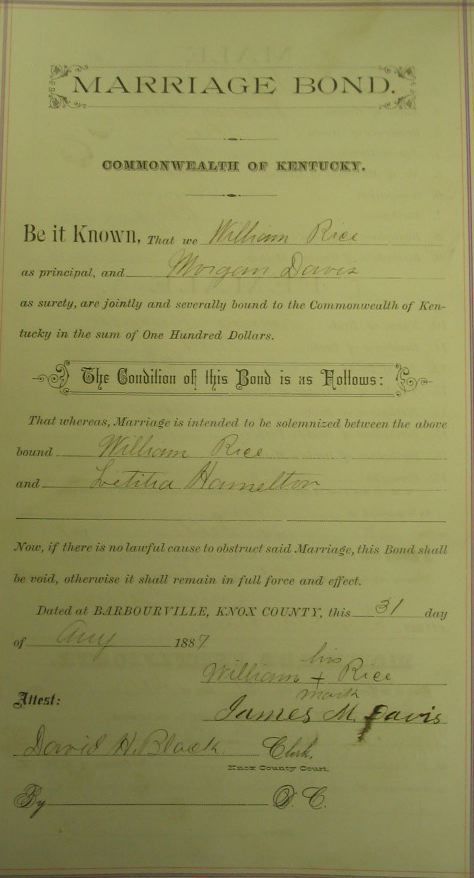 MARRIAGE BOND.
COMMONWEALTH OF KENTUCKY.
Be it Known, That we William Rice
as principal, and Morgan Davis
as surety, are jointly and severally bound to the Commonwealth of Ken-
tucky in the sum of One Hundred Dollars.
The Condition of this Bond is as Follows:
That whereas, Marriage is intended to be solemnized between the above
bound William Rice
and Letitia Hamelton
Now, if there is no lawful cause to obstruct said Marriage, this Bond shall
be void, otherwise it shall remain in full force and effect.
Dated at BARBOURVILLE, KNOX COUNTY, this 31 day
of Aug 1887
his
William + Rice
mark
Attest:
James M. Davis
David H. Black Clerk,
Knox County Court.
By D. C.